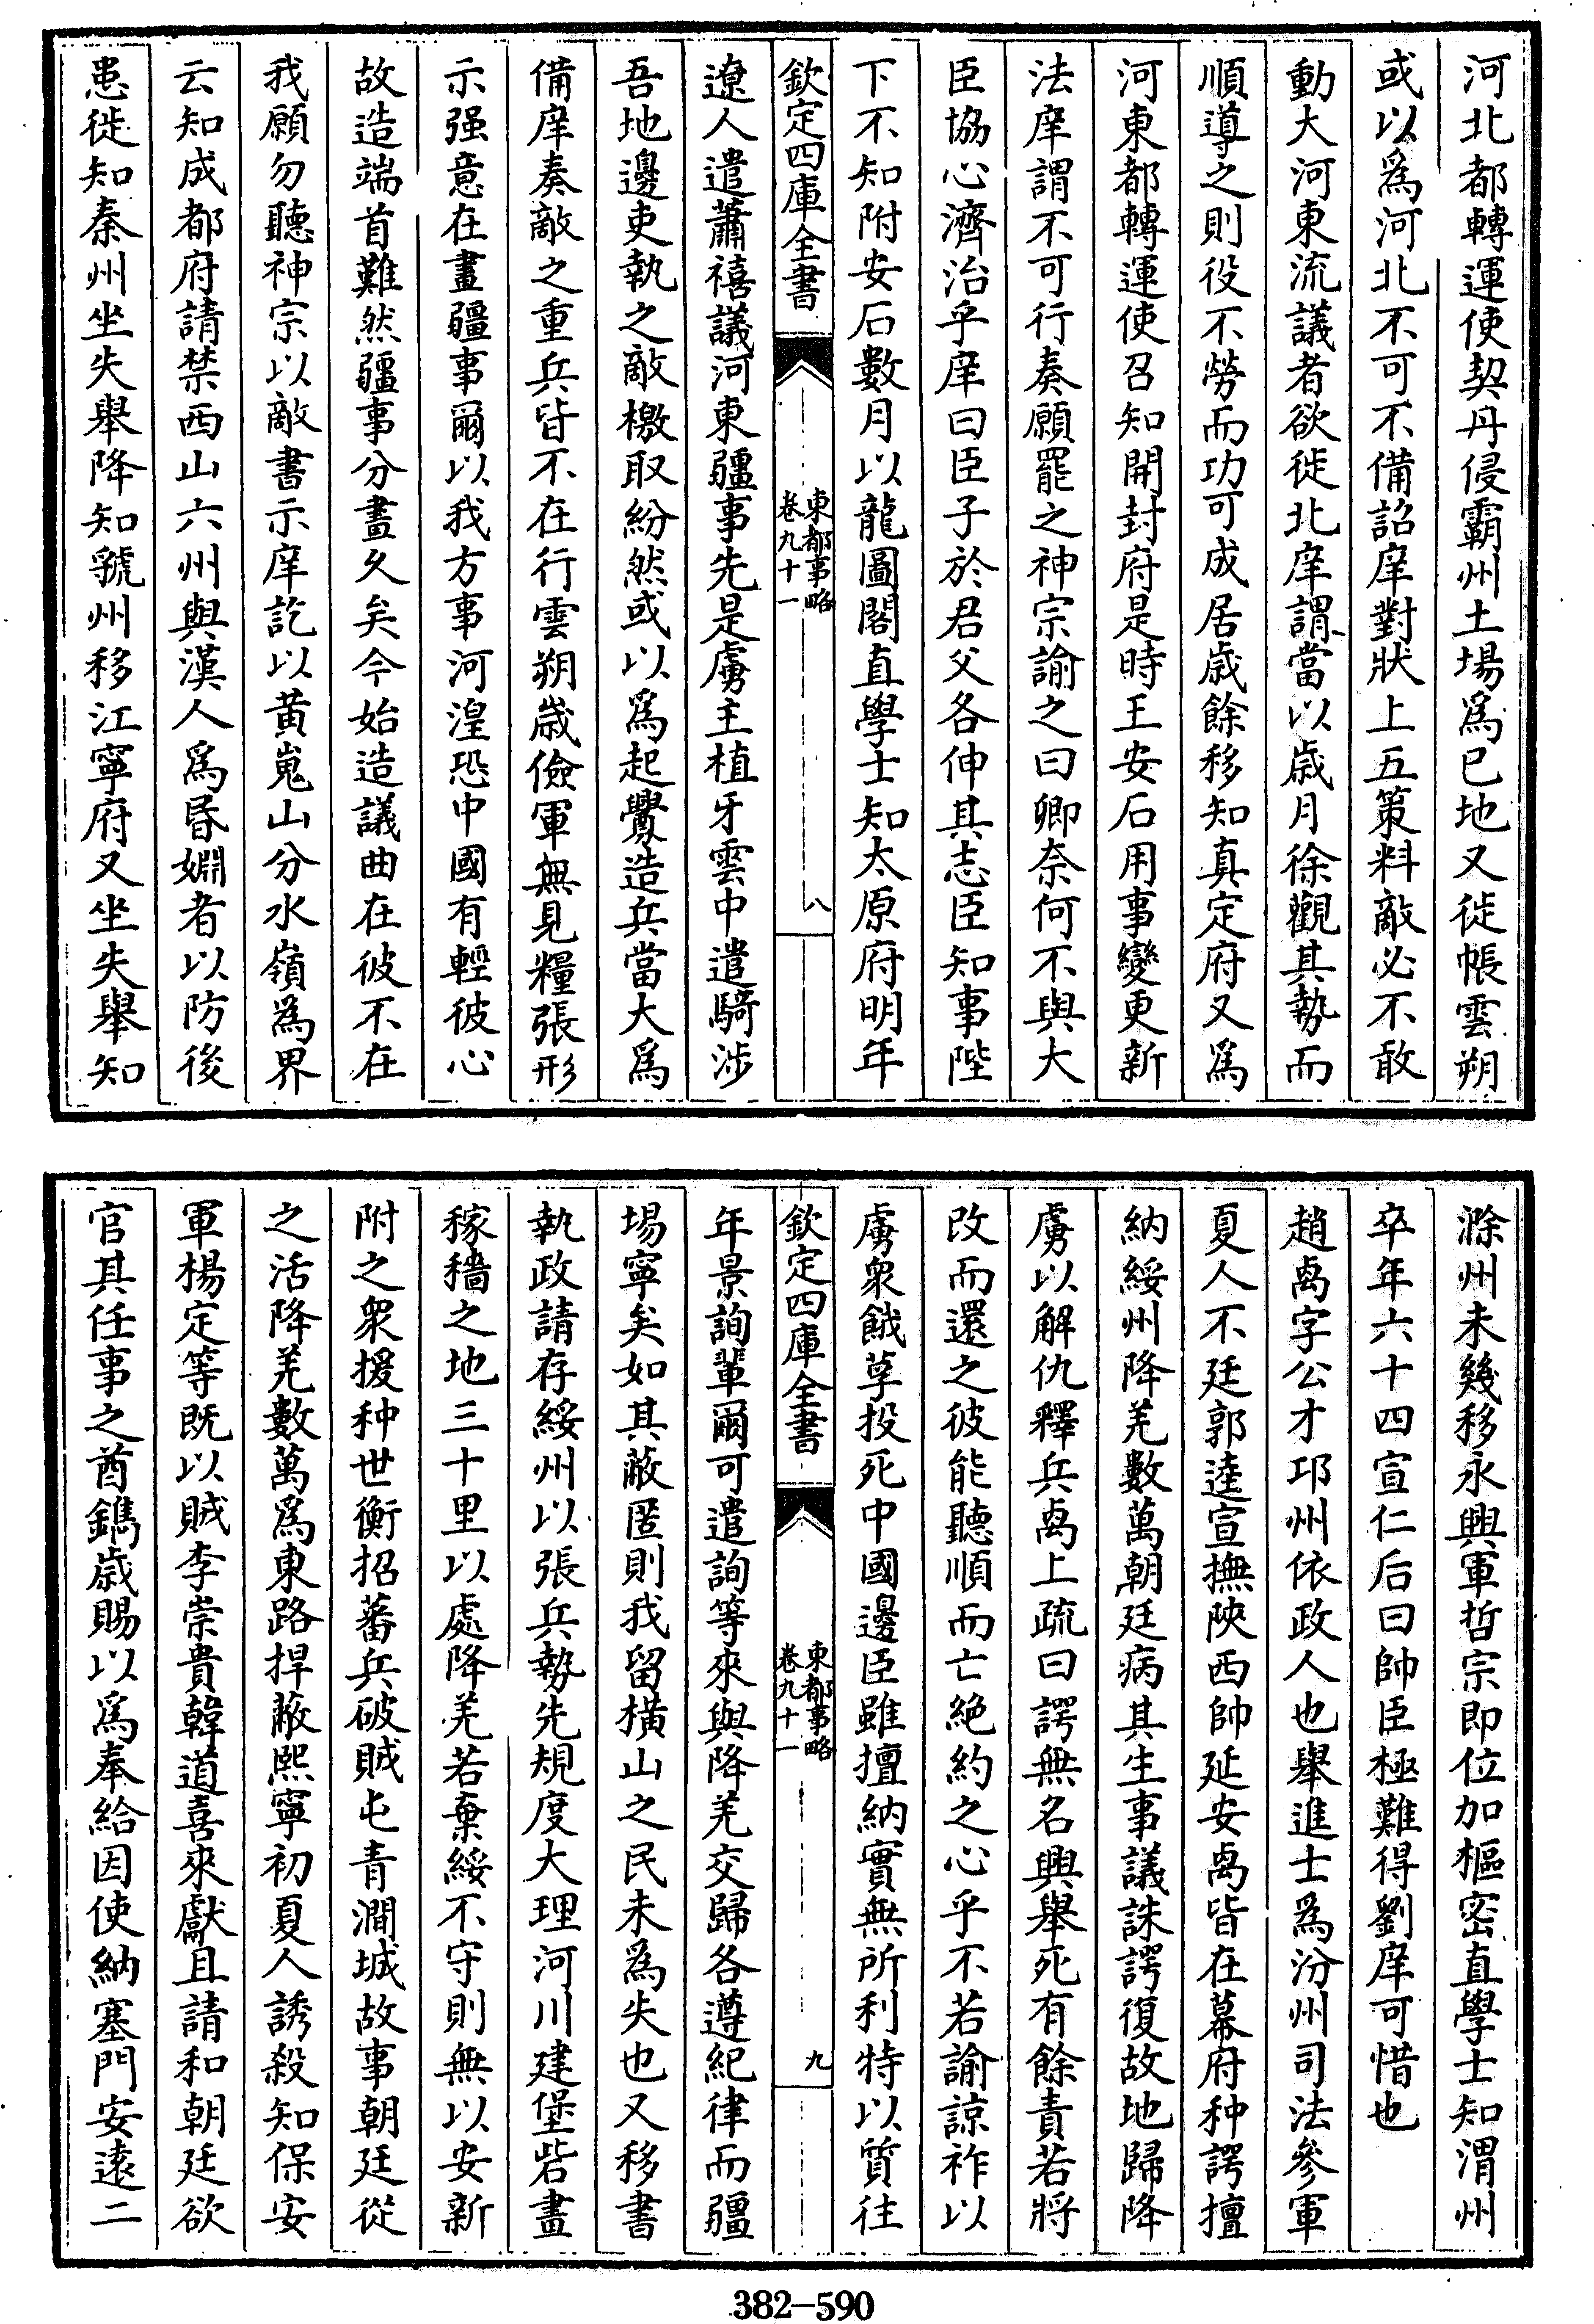 河北都轉運使契丹侵霸州土場爲已地又徙帳雲朔
或以爲河北不可不備詔庠對狀上五策料敵必不敢
動大河東流議者欲徙北庠謂當以歲月徐觀其勢而
順導之則役不勞而功可成居歲餘移知真定府又爲
河東都轉運使召知開封府是時王安石用事變更新
法庠謂不可行奏願罷之神宗諭之曰卿奈何不與大
臣協心濟治乎庠曰臣子於君父各伸其志臣知事陛
下不知附安石數月以龍圖閣直學士知太原府明年
欽定四庫全書
東都事略
卷九十一
八
遼人遣蕭禧議河東疆事先是虜主植牙雲中遣騎涉
吾地邊吏執之敵檄取紛然或以爲起釁造兵當大爲
備庠奏敵之重兵皆不在行雲朔歲儉軍無見糧張形
示强意在畫疆事爾以我方事河湟恐中國有輕彼心
故造端首難然疆事分畫久矣今始造議曲在彼不在
我願勿聽神宗以敵書示庠訖以黃嵬山分水嶺爲界
云知成都府請禁西山六州與漢人爲昏婣者以防後
患徙知秦州坐失舉降知虢州移江寧府又坐失舉知
滁州未幾移永興軍哲宗即位加樞密直學士知渭州
卒年六十四宣仁后曰帥臣極難得劉庠可惜也
趙卨字公才邛州依政人也舉進士爲汾州司法參軍
夏人不廷郭逵宣撫陝西帥延安卨皆在幕府种諤擅
納綏州降羌數萬朝廷病其生事議誅諤復故地歸降
虜以解仇釋兵卨上疏曰諤無名興舉死有餘責若將
改而還之彼能聽順而亡絶約之心乎不若諭諒祚以
虜衆餓莩投死中國邊臣雖擅納實無所利特以質往
欽定四庫全書
東都事略
卷九十一
九
年景詢輩爾可遣詢等來與降羌交歸各遵紀律而疆
場寧矣如其蔽匿則我留橫山之民未爲失也又移書
執政請存綏州以張兵勢先規度大理河川建堡砦畫
稼穡之地三十里以處降羌若棄綏不守則無以安新
附之衆援种世衡招蕃兵破賊屯青澗城故事朝廷從
之活降羌數萬爲東路捍蔽熙寧初夏人誘殺知保安
軍楊定等既以賊李崇貴韓道喜來獻且請和朝廷欲
官其任事之酋鐫歲賜以爲奉給因使納塞門安遠二
382-590